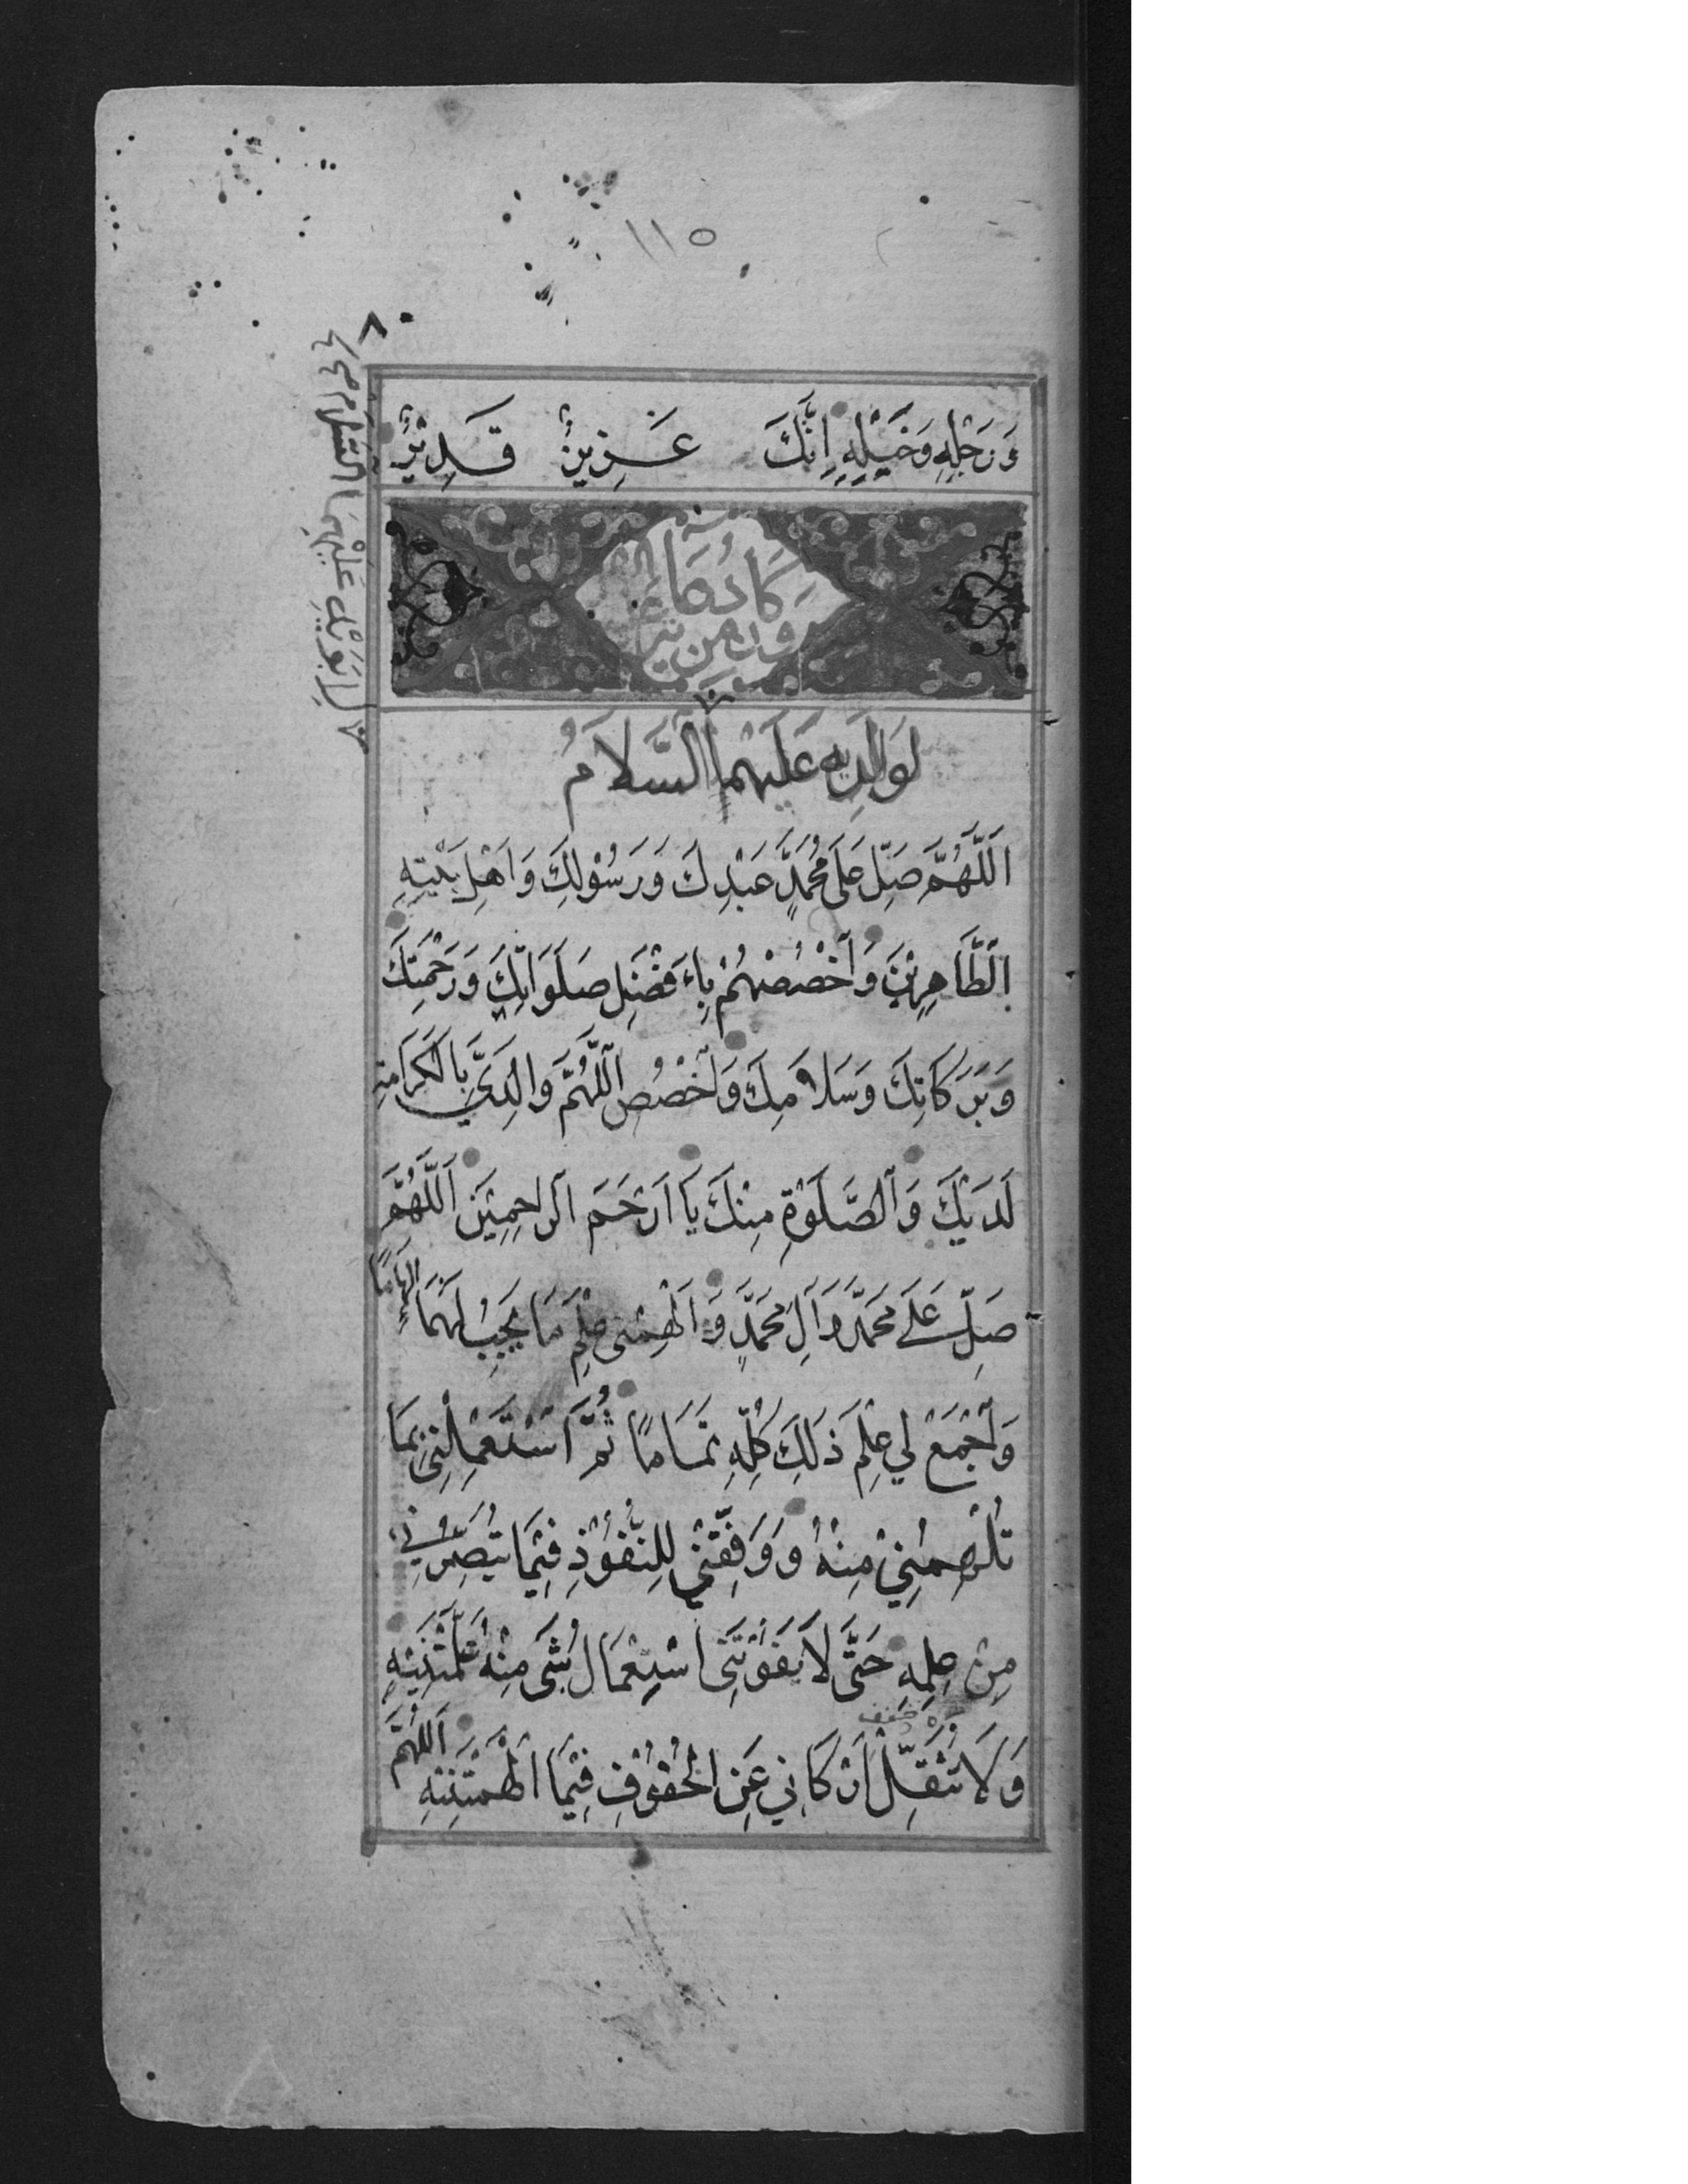 ١١٥
٨
لِأَبَوَيْهِ عَلَيْهِمَا السَّلَامُ
وَرَجْلِهِ وَخَيْلِهِ إِنَّكَ عَزِيزٌ قَدِيْرٌ
وَكَانَ مِنْ دُعَائِهِ
لِوَالِدَيْهِ عَلَيْهِمَا السَّلَامُ
اَللَّهُمَّ صَلِّ عَلَى مُحَمَّدٍ عَبْدِكَ وَرَسُوْلِكَ وَاَهْلِ بَيْتِهِ
الطَّاهِرِيْنَ وَاخْصُصْهُمْ بِاَفْضَلِ صَلَوَاتِكَ وَرَحْمَتِكَ
وَبَرَكَاتِكَ وَسَلَامِكَ وَاخْصُصِ اللَّهُمَّ وَالِدَيَّ بِالْكَرَامَةِ
لَدَيْكَ وَالصَّلَوٰةِ مِنْكَ يَا اَرْحَمَ الرَّاحِمِيْنَ اَللَّهُمَّ
صَلِّ عَلَى مُحَمَّدٍ وَآلِ مُحَمَّدٍ وَاَلْهِمْنِى عِلْمَ مَا يَجِبُ لَهُمَا اِلْهَامًا
وَاجْمَعْ لِي عِلْمَ ذَلِكَ كُلِّهِ تَمَامًا ثُمَّ اسْتَعْمِلْنِى بِمَا
تُلْهِمُنِيْ مِنْهُ وَوَفِّقْنِي لِلنُّفُوْذِ فِيْمَا تُبَصِّرُنِي
مِنْ عِلْمِهِ حَتَّى لَا يَفُوْتَنِى اسْتِعْمَالُ شَىْءٍ مِنْهُ عَلَّمْتَنِيْهِ
وَلَا تَثْقُلَ اَرْكَانِي عَنِ الْحُفُوْفِ فِيْمَا اَلْهَمْتَنِيْهِ اَللَّهُمَّ